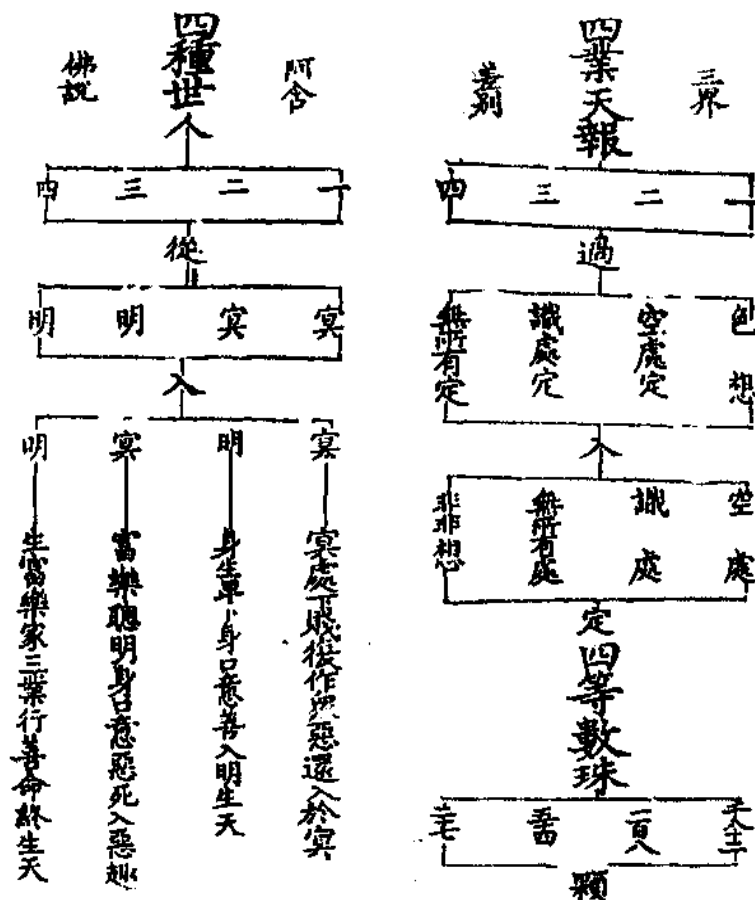 三界
四業天報
差別
一
二
三
四
過
色想
空處定
識處定
無所有定
入
空處
識處
無所有處
非非想
定
四等數珠
一千八十
一百八
五十四
二十七
顆
阿含
四種世人
佛說
一
二
三
四
從
冥
冥
明
明
入
冥
明
冥
明
冥處下賤後作眾惡還入於冥
身生卑小身口意善入明生天
富樂聰明身口意惡死入惡趣
生富樂家三業行善命終生天